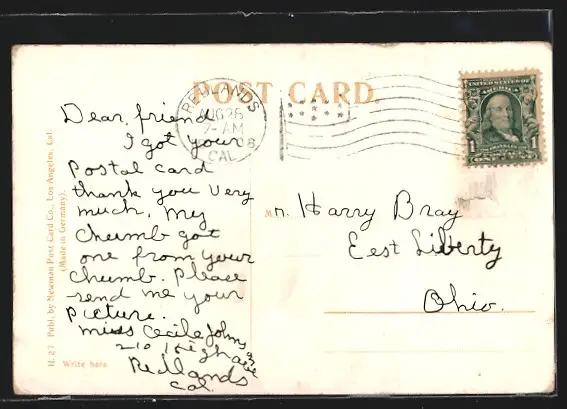 POST CARD.
REDLANDS
AUG 28
7-AM
CAL.
UNITED STATES OF
AMERICA
1 1
Dear, friend
I got your
Postal card
thank you very
much. my
Chumb got
one from your
chumb. Please
send me your
picture.
miss Cecile Johns
210 High ave
Redlands
Cal.
Mr. Harry Bray
Eest Liberty
Ohio.
H. 27 Publ. by Newman Post Card Co., Los Angeles, Cal.
(Made in Germany).
Write here